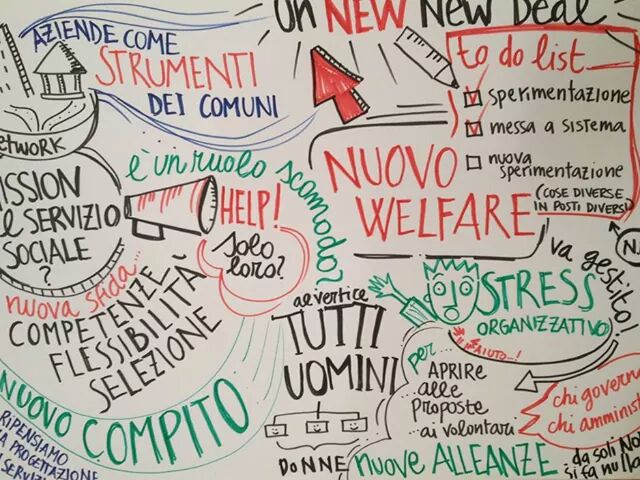 un NEW New Deal
AZIENDE COME
STRUMENTI
DEI COMUNI
to do list
sperimentazione
messa a sistema
nuova
sperimentazione
(COSE DIVERSE
IN POSTI DIVERSI)
NETWORK
MISSION
del SERVIZIO
SOCIALE
?
è un ruolo scomodo?
HELP!
solo
loro?
NUOVO
WELFARE
nuova sfida...
COMPETENZE
FLESSIBILITÀ
SELEZIONE
al vertice
TUTTI
UOMINI
DONNE
STRESS
ORGANIZZATIVO
va gestito!
AIUTO...!
per...
APRIRE
alle
Proposte
...ai volontari
chi governa
chi amminist
NUOVO COMPITO
RIPENSIAMO
LA PROGETTAZIONE
SERVIZI
nuove ALLEANZE
da soli NON
si fa nulla